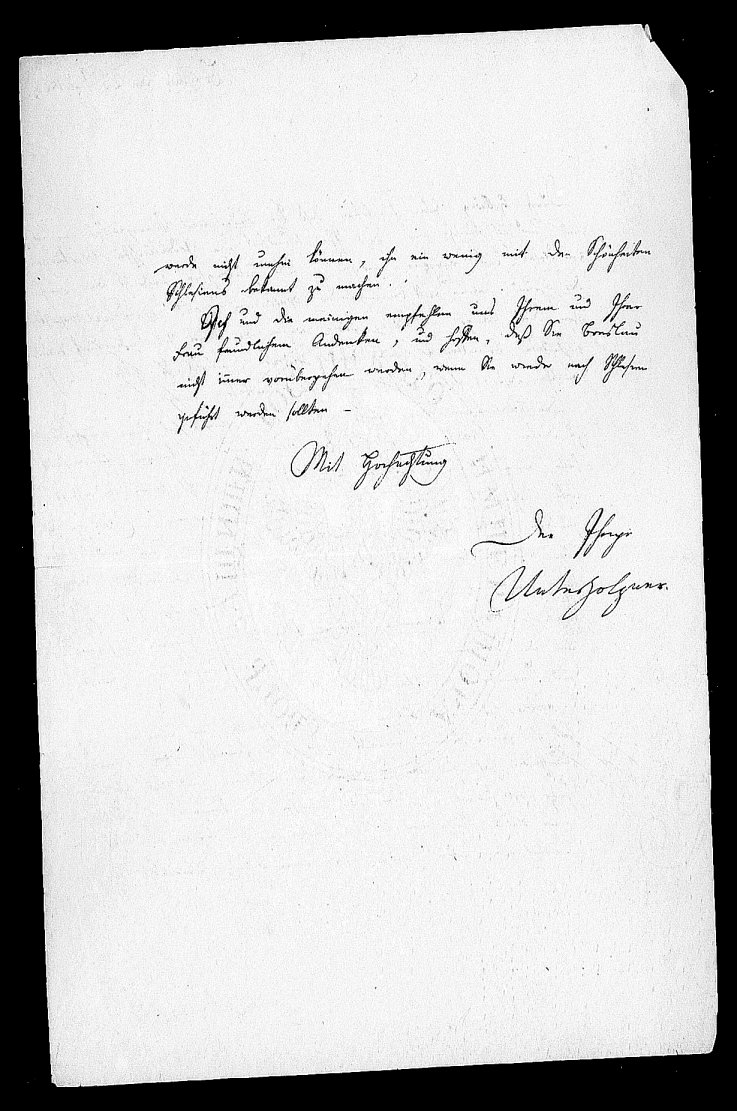 werde nicht umhin können, ihn ein wenig mit den Schönheiten
Schlesiens bekant zu machen.
Ich und die meinigen empfehlen uns Ihrem und Ihrer
Frau freundlichem Andenken, und hoffen, daß Sie Breslau
nicht immer vorübergehen werden, wenn Sie wieder nach Schlesien
geführt werden sollten –
Mit Hochachtung
Der Ihrige
Unterholzner.